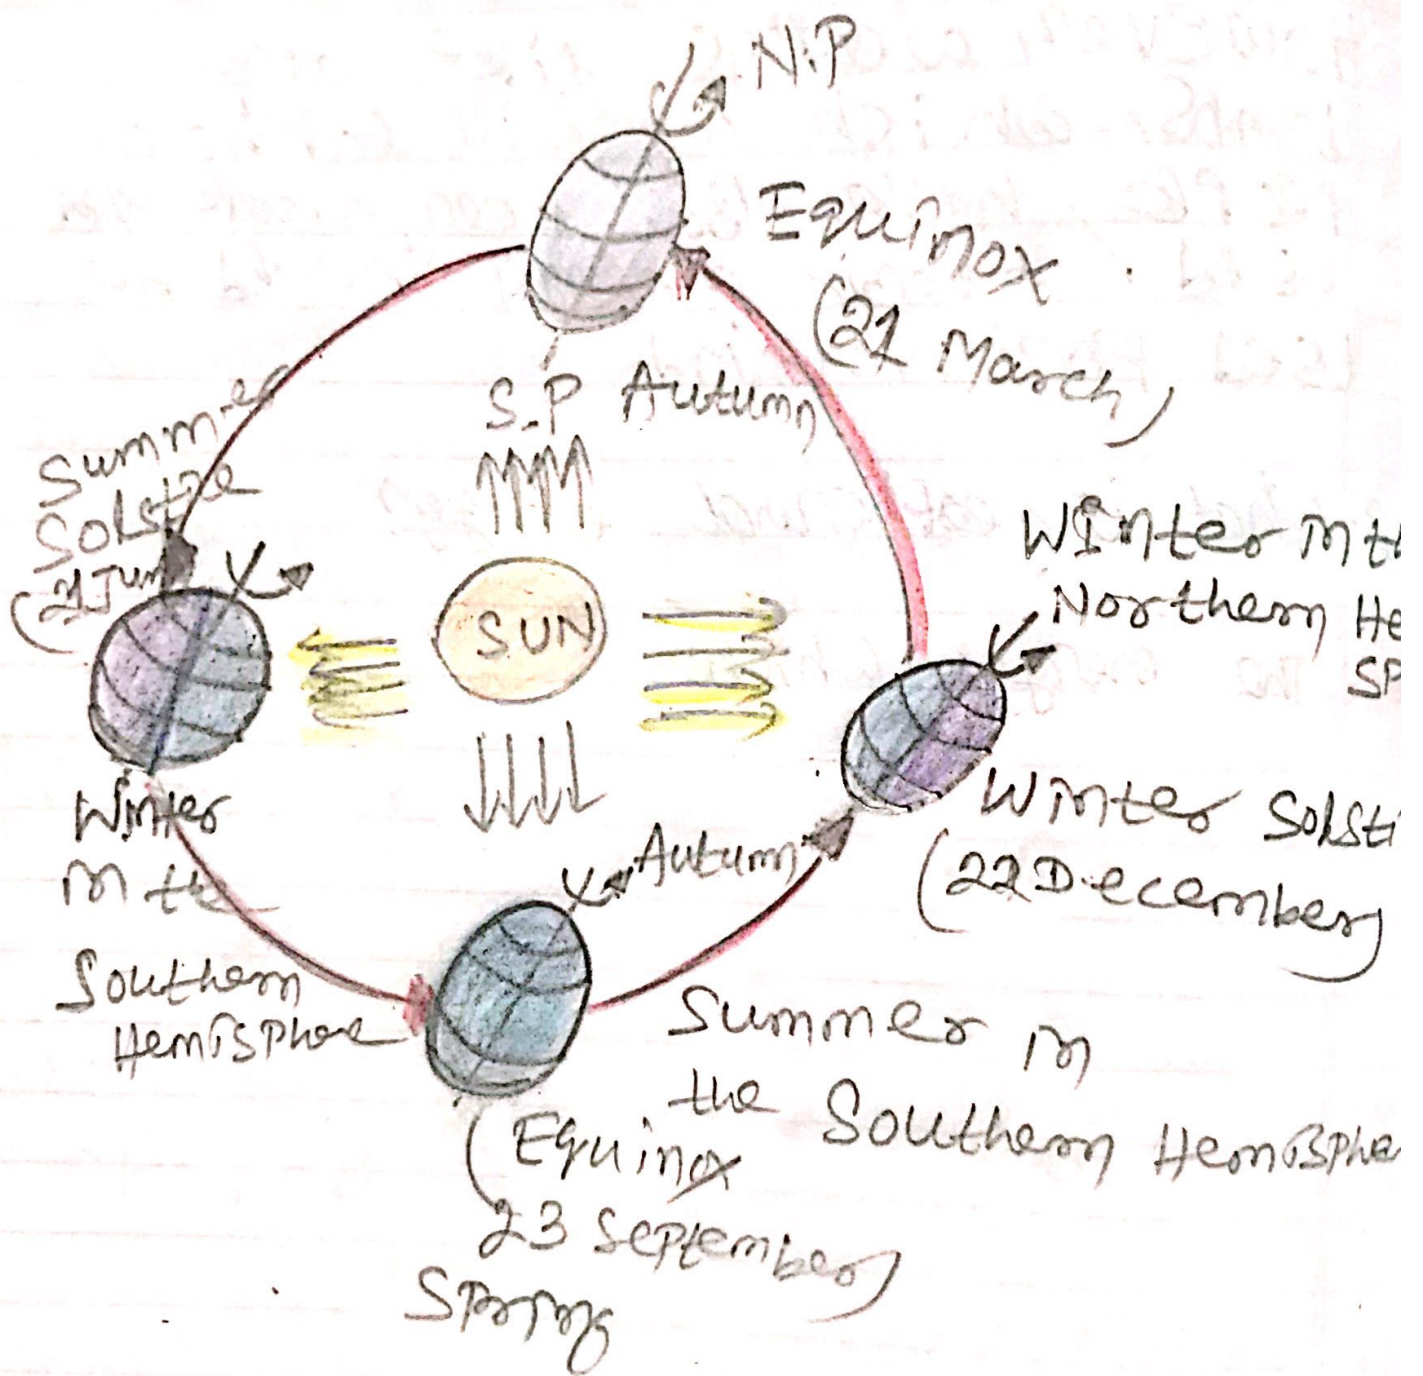 N.P
Equinox
(21 March)
S.P Autumn
Summer
Solstice
(21 June
SUN
Winter in the
Northern He
SP
Winter Solsti
(22 December)
Winter
in the
Autumn
Southern
Hemisphere
Summer in
the Southern Hemisphe
(Equinox
23 September)
Spring